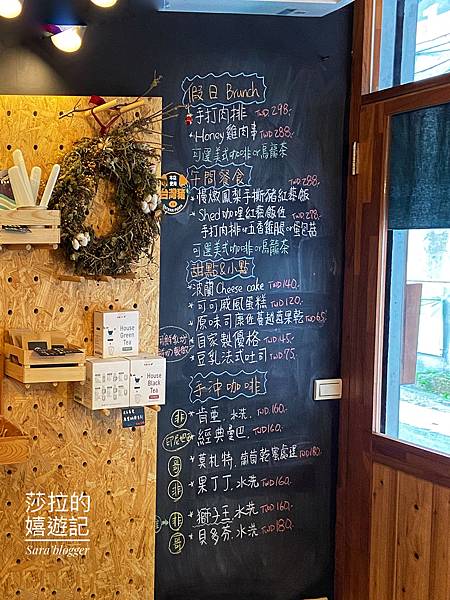 假日 Brunch
*手打肉排 TWD 298.
*Honey 雞肉串 TWD 288.
可選美式咖啡 or 烏龍茶
午間餐食
*慢燉鳳梨手撕豬紅藜飯 TWD 288.
*Shed 咖哩紅藜飯佐 TWD 278.
手打肉排 or 五香雞腿 or 蛋包菇
可選美式咖啡 or 烏龍茶
甜點&小點
*波蘭 Cheese cake TWD 140.
*可可戚風蛋糕 TWD 120.
*原味司康佐蔓越莓果乾 TWD 65.
*自家製優格 TWD 45.
*豆乳法式吐司 TWD 75.
手沖咖啡
非 *肯亞, 水洗. TWD 160.
*經典曼巴. TWD 160.
哥 *莫札特, 葡萄乾蜜處理 TWD 180.
非 *果丁丁, 水洗 TWD 160.
非 *獅子王, 水洗 TWD 160.
哥 *貝多芬, 水洗 TWD 180.
台灣豬
House
Green
Tea
House
Black
Tea
莎拉的
嬉遊記
Sara blogger